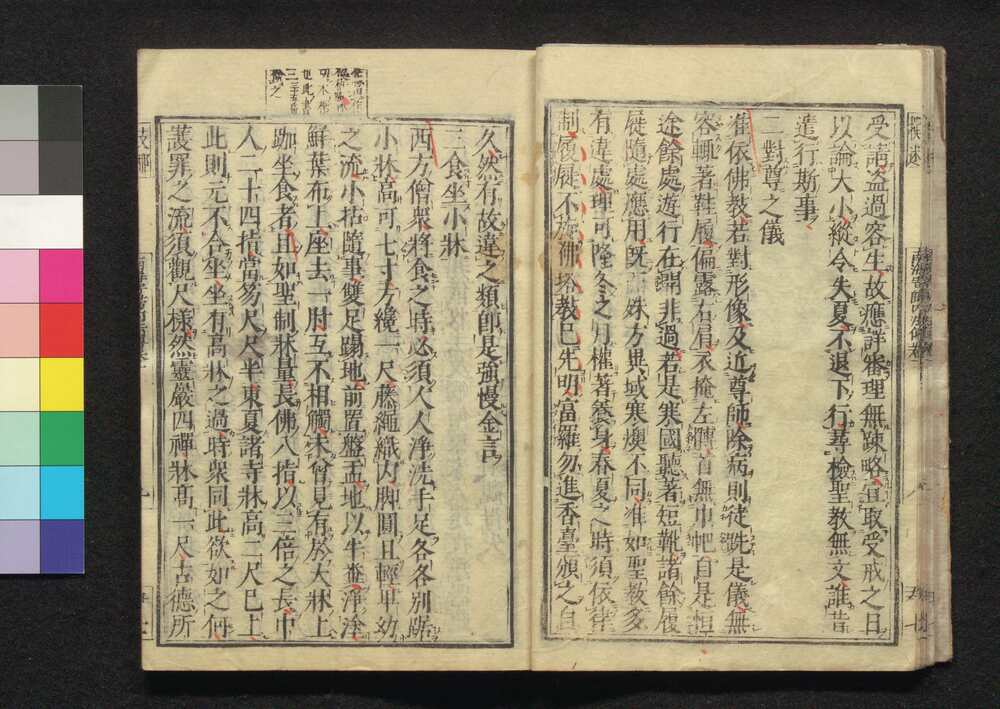 受請盗過容生故應詳審理無疎略宜取受戒之日
以論大小縱令失夏不退下行尋檢聖教無文誰昔
遣行斯事
二對尊之儀
准依佛教若對形像及近尊師除病則徒跣是儀無
容輒著鞋履偏露右肩衣掩左髆首無巾帊自是恒
途餘處遊行在開非過若是寒國聽著短靴諸餘履
屣隨處應用既而殊方異域寒燠不同准如聖教多
有違處理可隆冬之月權著養身春夏之時須依律
制履屣不旋佛塔教已先明富羅勿進香臺頒之自
久然有故違之類即是強慢金言
三食坐小牀
西方僧衆將食之時必須人人淨洗手足各各別踞
小牀高可七寸方纔一尺藤繩織内脚圓且輕卑幼
之流小拈隨事雙足蹋地前置盤盂地以牛糞淨塗
鮮葉布上座去一肘互不相觸未曾見有於大牀上
跏坐食者且如聖制牀量長佛八指以三倍之長中
人二十四指當笏尺尺半東夏諸寺牀高二尺已上
此則元不合坐坐有高牀之過時衆同此欲如之何
護罪之流須觀尺樣然靈巖四禪牀高一尺古德所